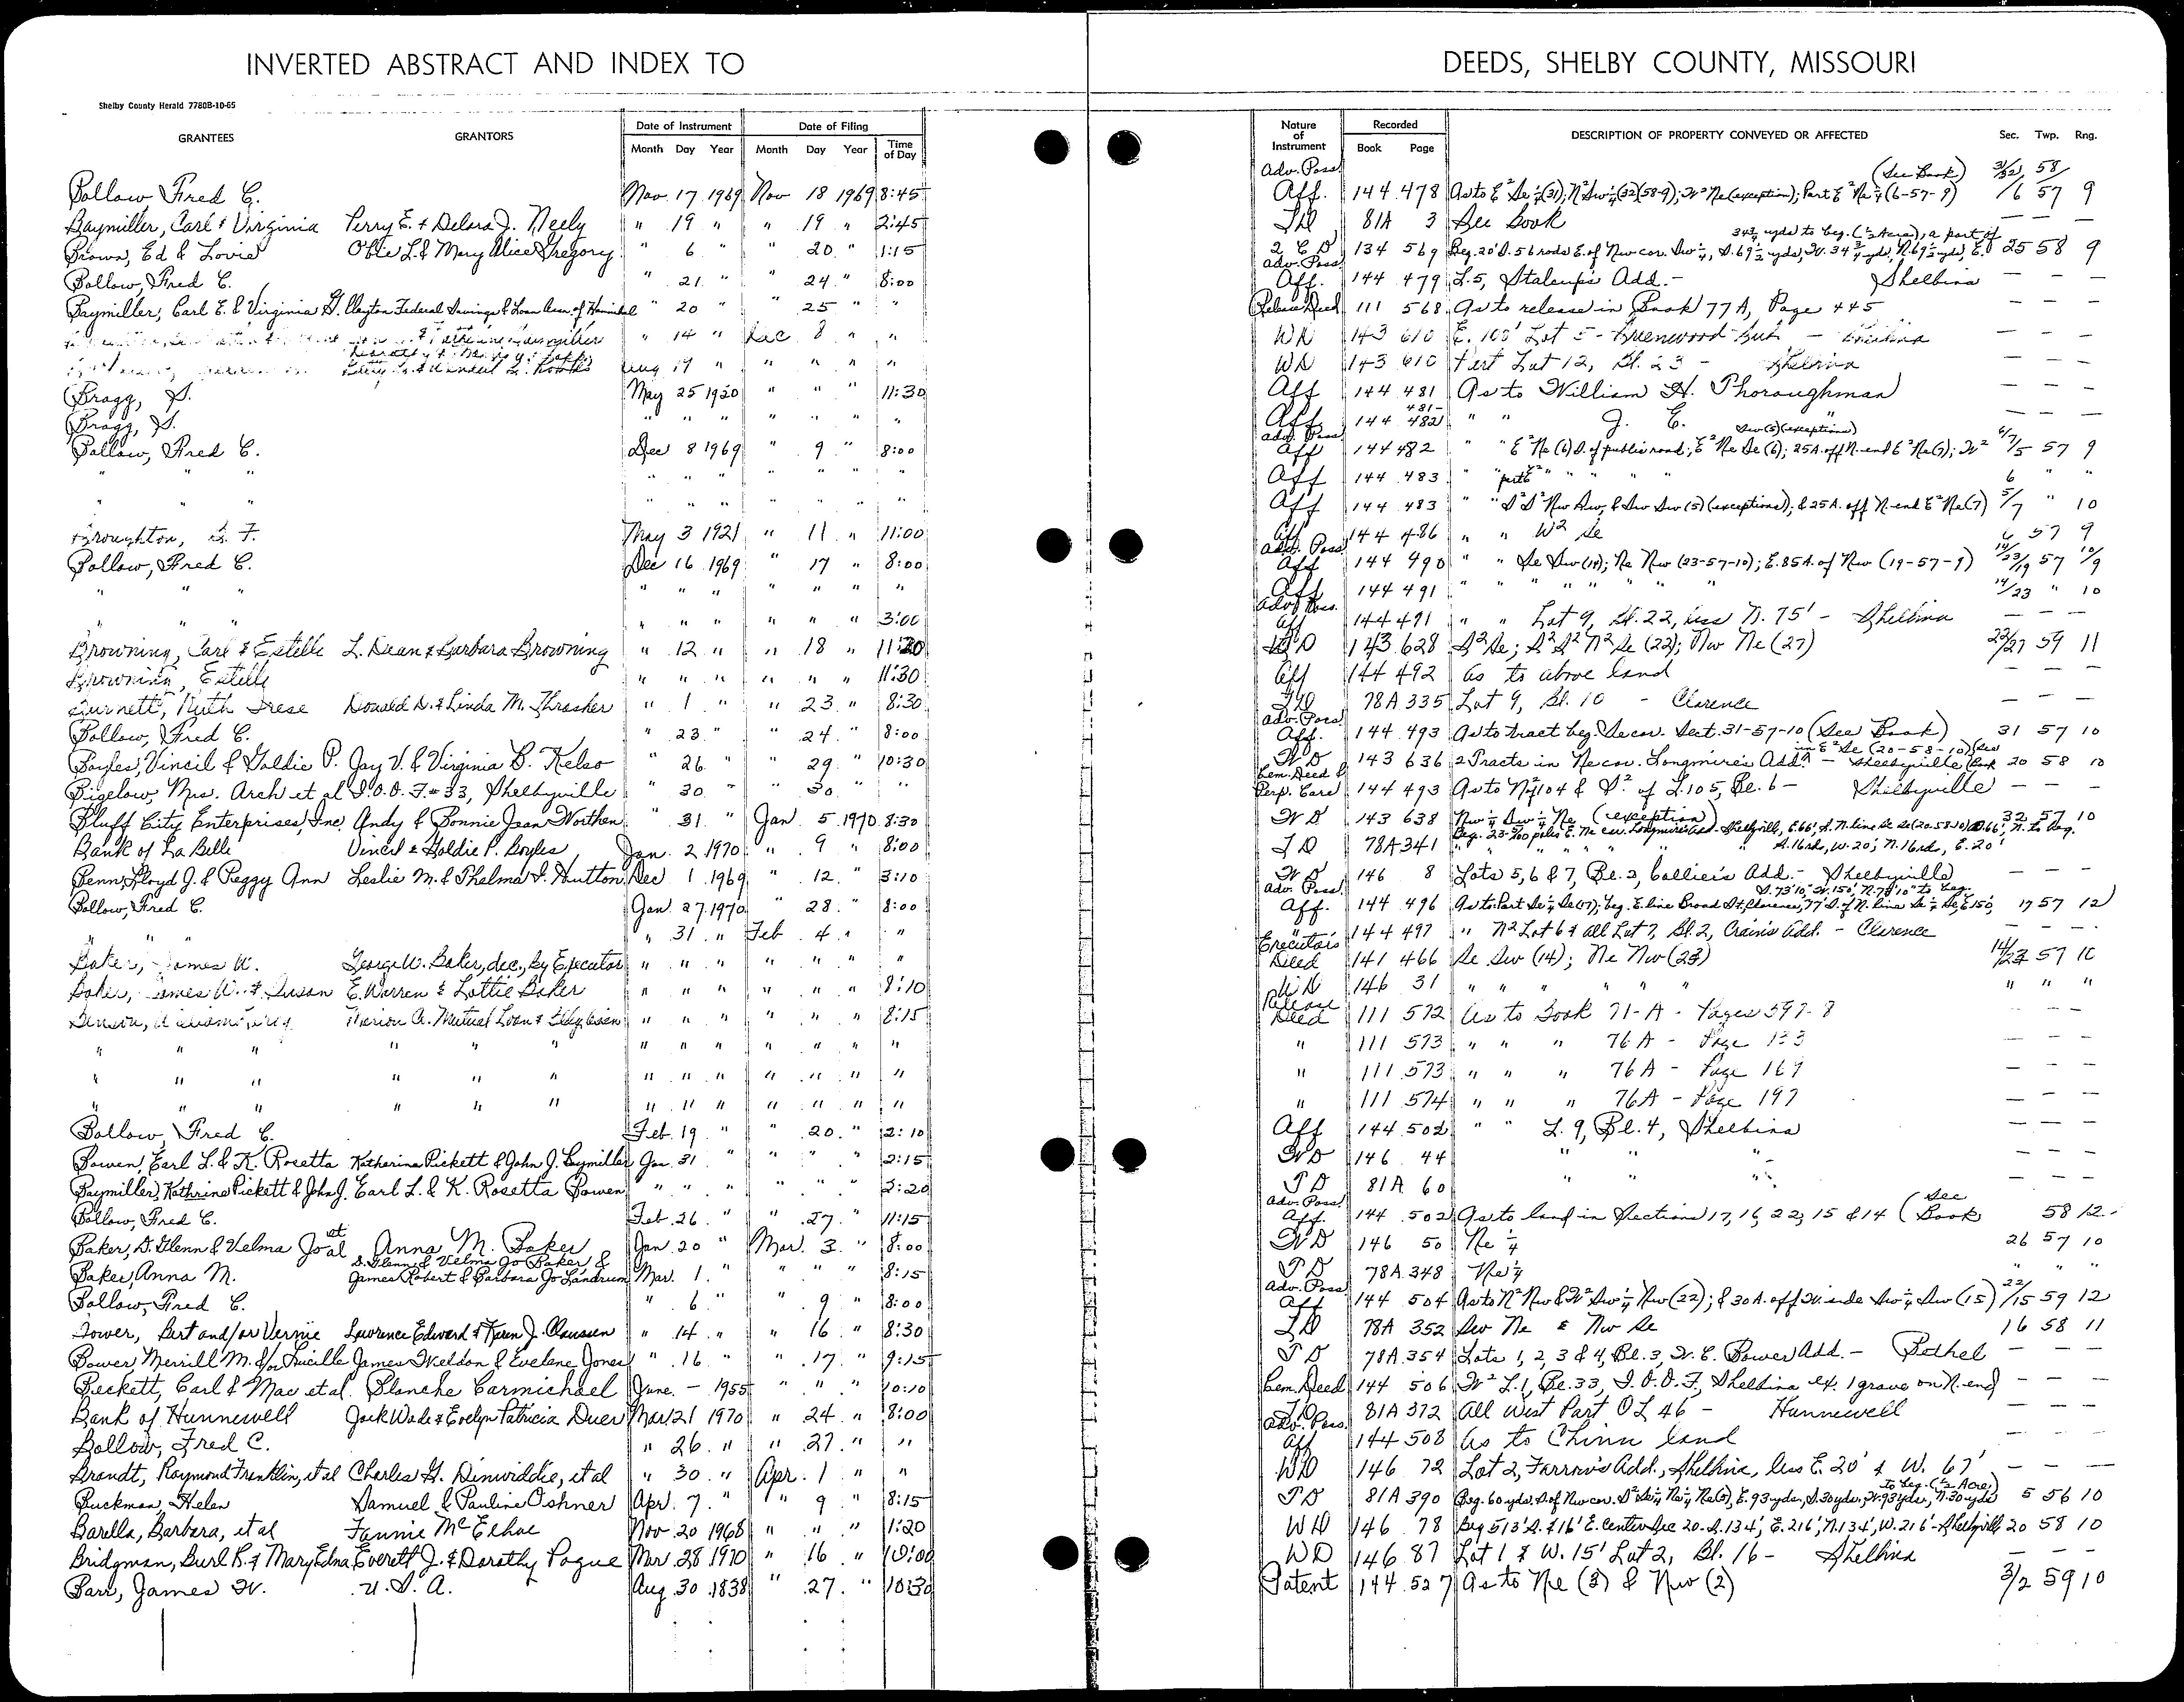 INVERTED ABSTRACT AND INDEX TO DEEDS, SHELBY COUNTY, MISSOURI
Shelby County Herald 7780B-10-65
GRANTEES GRANTORS Date of Instrument Date of Filing Nature of Instrument Recorded DESCRIPTION OF PROPERTY CONVEYED OR AFFECTED Sec. Twp. Rng.
Month Day Year Month Day Year Time of Day Book Page
Bollow Fred C. Nov 17 1969 Nov 18 1969 8:45 Adv. Poss. Aff. 144 478 As to E² Se ¼ (31); N² Sw ¼ (32)(58-9); W² Ne (exception); Part E² Ne ¼ (6-57-9) (See Book) 31/32 58/ /6 57 9
Baymiller, Carl & Virginia Perry E. & Delora J. Neely " 19 " " 19 " 2:45 81A 3 See book — — —
Brown, Ed & Lovie Obie L. & Mary Alice Gregory " 6 " " 20 " 1:15 2 C D 134 569 Beg. 20' S. 56 rods E. of Nw cor. Sw ¼, S. 69½ yds, W. 34¾ yds, N. 69½ yds, E. 34¾ yds to beg. (½ Acre), a part of 25 58 9
Bollow, Fred C. " 21 " " 24 " 8:00 Adv. Poss. Aff. 144 479 L. 5, Stalcup's Add. - Shelbina — —
Baymiller, Carl E. & Virginia G. Clayton Federal Savings & Loan Assn. of Hannibal " 20 " " 25 " " Release Deed 111 568 As to release in Book 77A, Page 445 — — —
" 14 " Dec 8 " " WD 143 610 E. 100' Lot 5 - Greenwood Sub — Shelbina — — —
Aug 19 " " " " " WD 143 610 Part Lot 12, Bl. 23 - Shelbina — — —
Bragg, S. May 25 1920 " " " 11:30 Aff 144 481 As to William H. Thoroughman — — —
Bragg, S. " " " " " " " Aff. 144 481-482 " " J. E. " — — —
Bollow, Fred C. Dec 8 1969 " 9 " 8:00 Adv. Poss. Aff 144 482 " " E² Ne (6) S. of public road; E² Ne Se (6); 25A. off N. end E² Ne (7); W² Sw (5) (exceptions) 6/7/5 57 9
" " " " " " " " " " Aff 144 483 " " part E² " " 6 " "
" " " " " " " " " " Aff 144 483 " " S² S² Nw Sw, & Sw Sw (5) (exceptions); & 25A. off N. end E² Ne (7) 5/7 " 10
Broughton, S. F. May 3 1921 " 11 " 11:00 Aff 144 486 " " W² Se 6 57 9
Bollow, Fred C. Dec 16 1969 " 17 " 8:00 Adv. Poss. Aff 144 490 " " Se Sw (14); Ne Nw (23-57-10); E. 85A. of Nw (19-57-9) 14/23/19 57 10/9
" " " " " " " " " " Aff 144 491 " " " " " " " " 14/23 " 10
" " " " " " " " " 3:00 Adv. Poss. Aff 144 491 " " Lot 9, Bl. 22, less N. 75' - Shelbina — — —
Browning, Carl & Estelle L. Dean & Barbara Browning " 12 " " 18 " 11:20 143 628 S² Se; S² S² N² Se (22); Nw Ne (27) 22/27 59 11
Browning, Estelle " " " " " " 11:30 Aff 144 492 As to above land — —
Burnett, Ruth Irese Donald D. & Linda M. Thrasher " 1 " " 23 " 8:30 78A 335 Lot 9, Bl. 10 - Clarence — — —
Bollow, Fred C. " 23 " " 24 " 8:00 Adv. Poss. Aff. 144 493 As to tract beg. Se cor. Sect. 31-57-10 (See Book) 31 57 10
Boyles, Vincil & Goldie P. Jay V. & Virginia B. Kelso " 26 " " 29 " 10:30 WD 143 636 2 Tracts in Ne cor. Longmire's Add. - Shelbyville in E² Se (20-58-10) (See Book 20 58 10
Bigelow, Mrs. Arch et al I.O.O.F. #33, Shelbyville " 30 " " 30 " " Cem. Deed & Perp. Care 144 493 As to N² 104 & S² of L. 105, Bl. 6 - Shelbyville — — —
Bluff City Enterprises, Inc. Andy & Bonnie Jean Worthen " 31 " Jan 5 1970 8:30 WD 143 638 Nw ¼ Sw ¼ Ne (exception) 32 57 10
Bank of La Belle Vincil & Goldie P. Boyles Jan. 2 1970 " 9 " 8:00 78A 341
Benn, Lloyd J. & Peggy Ann Leslie M. & Thelma I. Hutton Dec 1 1969 " 12 " 3:10 WD 146 8 Lots 5, 6 & 7, Bl. 2, Collier's Add. - Shelbyville — — —
Bollow, Fred C. Jan. 27 1970 " 28 " 8:00 Adv. Poss. Aff. 144 496 As to Part Se ¼ Se (17); beg. E. line Broad St. Clarence, 77' S. of N. line Se ¼ Se, E. 150', S. 73'10", W. 150', N. 73'10" to beg. 17 57 12
" " " " 31 " Feb 4 " " " 144 497 " N² Lot 6 & all Lot 7, Bl. 2, Crain's Add. - Clarence — — —
Baker, James W. George W. Baker, dec., by Executor " " " " " " " Executor's Deed 141 466 Se Sw (14); Ne Nw (23) 14/23 57 10
Baker, James W. & Susan E. Warren & Lottie Baker " " " " " " 8:10 WD 146 31 " " " " " " " "
" " " " " " 8:15 Release Deed 111 572 As to Book 71-A - Pages 597-8 — —
" " " " " " " " " " " " " " 111 573 " " " 76A - Page 133 — — —
" " " " " " " " " " " " " " 111 573 " " " 76A - Page 169 — — —
" " " " " " " " " " " " " " 111 574 " " " 76A - Page 197 — — —
Bollow, Fred C. Feb. 19 " " 20 " 2:10 Aff 144 502 " " L. 9, Bl. 4, Shelbina — — —
Bowen, Earl L. & K. Rosetta Katherine Pickett & John J. Baymiller Jan. 31 " " " " 2:15 WD 146 44 " " " — — —
Baymiller, Kathrine Pickett & John J. Earl L. & K. Rosetta Bowen " " " " " " 2:20 81A 60 " " " — — —
Bollow, Fred C. Feb. 26 " " 27 " 11:15 Adv. Poss. Aff. 144 502 As to land in Sections 17, 16, 22, 15 & 14 (See Book 58 12
Baker, D. Glenn & Velma Jo et al Anna M. Baker Jan. 20 " Mar. 3 " 8:00 WD 146 50 Ne ¼ 26 57 10
Baker, Anna M. D. Glenn & Velma Jo Baker & James Robert & Barbara Jo Landrum Mar. 1 " " " " 8:15 78A 348 Ne ¼ " " "
Bollow, Fred C. " 6 " " 9 " 8:00 Adv. Poss. Aff 144 504 As to N² Nw & W² Sw ¼ Nw (22); & 30 A. off W. side Sw ¼ Sw (15) 22/15 59 12
Bower, Bert and/or Vernie Lawrence Edward & Karen J. Claussen " 14 " " 16 " 8:30 78A 352 Sw Ne & Nw Se 16 58 11
Bower Merrill M. &/or Lucille James Weldon & Evelene Jones " 16 " " 17 " 9:15 78A 354 Lots 1, 2, 3 & 4, Bl. 3, W. C. Bower Add. - Bethel — — —
Beckett, Carl & Mae et al. Blanche Carmichael June - 1955 " " " 10:10 Cem. Deed 144 506 W² L. 1, Bl. 33, I.O.O.F., Shelbina ex. 1 grave on N. end — — —
Bank of Hunnewell Jack Wade & Evelyn Patricia Duer Mar. 21 1970 " 24 " 8:00 81A 372 All West Part OL 46 - Hunnewell — — —
Bollow, Fred C. " 26 " " 27 " " Adv. Poss. Aff 144 508 As to Chinn land — — —
Brandt, Raymond Franklin, et al Charles G. Dinwiddie, et al " 30 " Apr. 1 " " WD 146 72 Lot 2, Farrow's Add., Shelbina, less E. 20' & W. 67' — — —
Buckman, Helen Samuel & Pauline Oshner Apr. 7 " " 9 " 8:15 81A 390 Beg. 60 yds. S. of Nw cor. S² Se ¼ Ne ¼ Ne (5), E. 93 yds, S. 30 yds., W. 93 yds, N. 30 yds to beg. (½ Acre) 5 56 10
Barella, Barbara, et al Fannie McElhoe Nov 20 1968 " " " 1:20 WD 146 78 Beg 513' S. & 16' E. center Sec 20 - S. 134', E. 216', N. 134', W. 216' - Shelbyville 20 58 10
Bridgman, Burl R. & Mary Edna Everett J. & Dorothy Pogue Mar. 28 1970 " 16 " 10:00 WD 146 87 Lot 1 & W. 15' Lot 2, Bl. 16 - Shelbina — — —
Barr, James W. U. S. A. Aug 30 1838 " 27 " 10:30 Patent 144 527 As to Ne (3) & Nw (2) 3/2 59 10